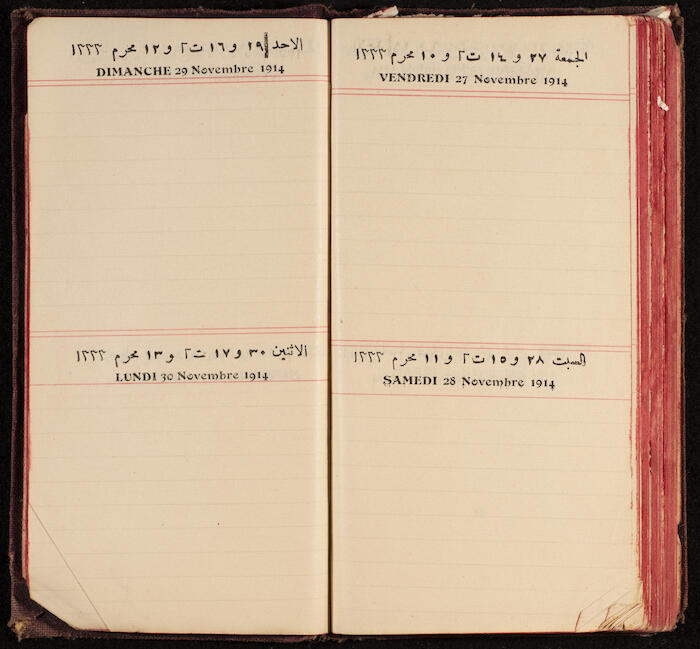 الجمعة ٢٧ و ١٤ ت٢ و ١٠ محرم ١٣٣٣
VENDREDI 27 Novembre 1914
السبت ٢٨ و ١٥ ت٢ و ١١ محرم ١٣٣٣
SAMEDI 28 Novembre 1914
الاحد ٢٩ و ١٦ ت٢ و ١٢ محرم ١٣٣٣
DIMANCHE 29 Novembre 1914
الاثنين ٣٠ و ١٧ ت٢ و ١٣ محرم ١٣٣٣
LUNDI 30 Novembre 1914